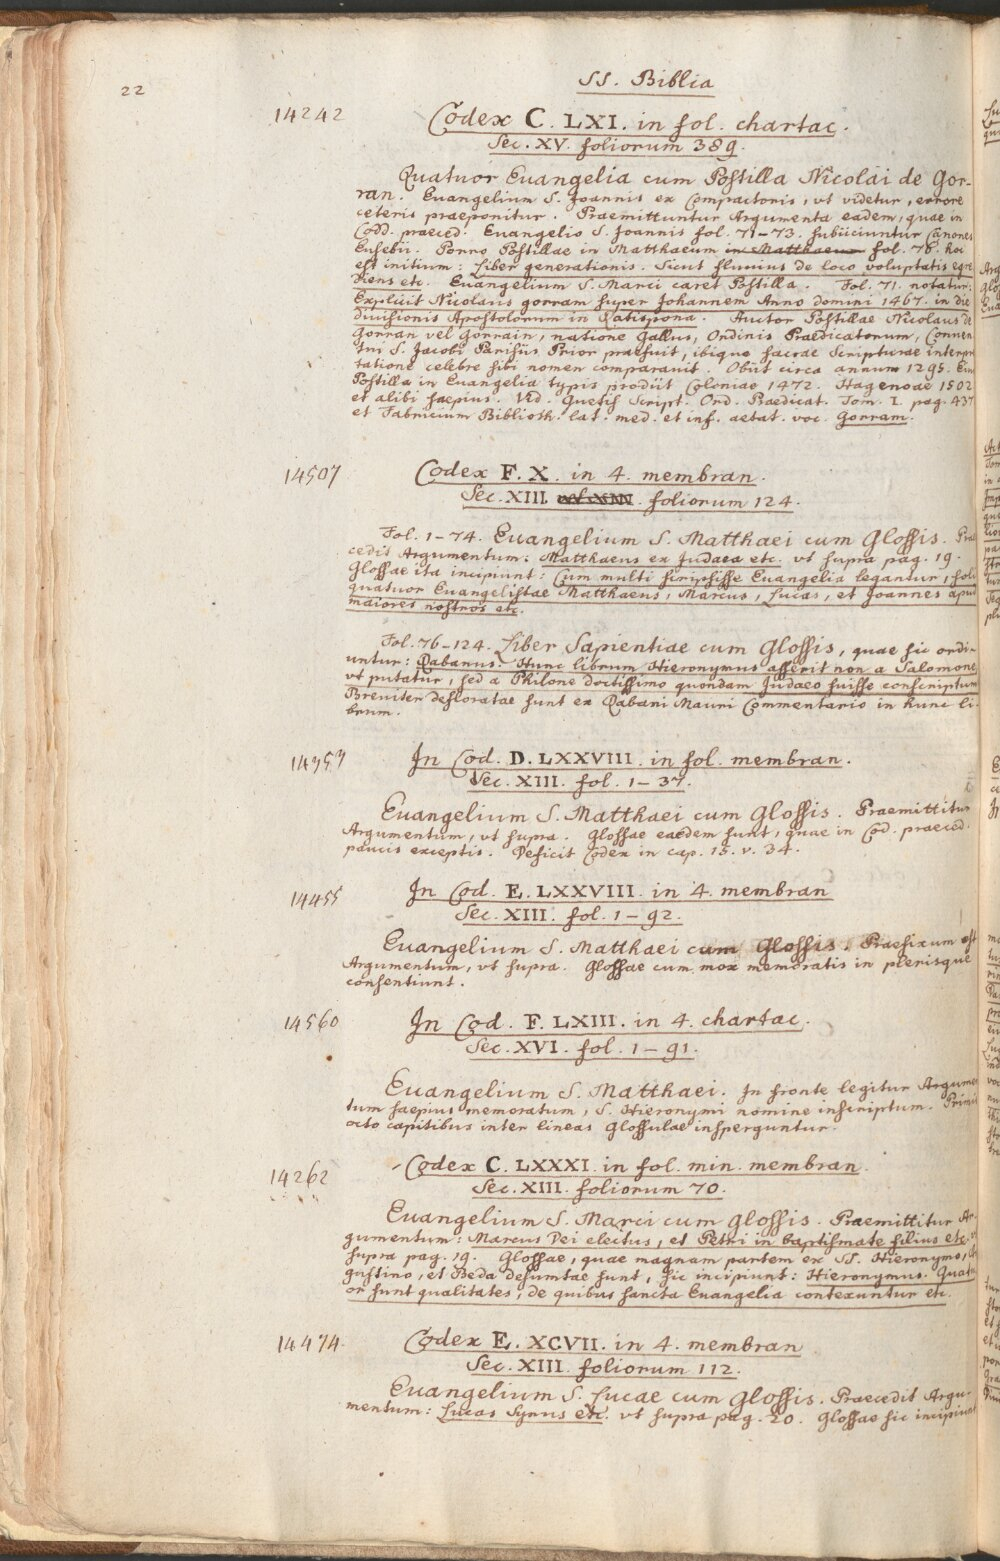 22
SS. Biblia
14242
Codex C. LXI. in fol. chartac.
Sec. XV. foliorum 389.
Quatuor Euangelia cum Postilla Nicolai de Gor-
ran. Euangelium S. Joannis ex Compactoris, vt videtur, errore
ceteris praeponitur. Praemittuntur Argumenta eadem, quae in
Codd. praeced. Euangelio S. Joannis fol. 71-73. subiiciuntur Canones
Eusebii. Porro Postillae in Matthaeum in Matthaeum fol. 76. hoc
est initium: Liber generationis. Sicut fluuius de loco voluptatis egre
diens etc. Euangelium S. Marci caret Postilla. Fol. 71. notatur:
Explicit Nicolaus gorram super Johannem Anno domini 1467. in die
diuisionis Apostolorum in Ratispona. Auctor Postillae Nicolaus de
Gorran vel Gorrain, natione Gallus, Ordinis Praedicatorum, Conuen
tui S. Jacobi Parisiis Prior praefuit, ibique sacrae Scripturae interpre
tatione celebre sibi nomen comparauit. Obiit circa annum 1295. Eius
Postilla in Euangelia typis prodiit Coloniae 1472. Hagenoae 1502
et alibi saepius. Vid. Quetif Script. Ord. Praedicat. Tom. I. pag. 437
et Fabricium Biblioth. lat. med. et inf. aetat. voc. Gorram.
14507
Codex F. X. in 4. membran.
Sec. XIII. foliorum 124.
Fol. 1-74. Euangelium S. Matthaei cum Glossis. Prae
cedit Argumentum: Matthaeus ex Judaea etc. vt supra pag. 19.
Glossae ita incipiunt: Cum multi scripsisse Euangelia legantur, soli
quatuor Euangelistae Matthaeus, Marcus, Lucas, et Joannes apud
maiores nostros etc.
Fol. 76-124. Liber Sapientiae cum Glossis, quae sic ordi-
untur: Rabanus. Hunc librum Hieronymus asserit non a Salomone,
vt putatur, sed a Philone doctissimo quondam Judaeo fuisse conscriptum
Breuiter defloratae sunt ex Rabani Mauri Commentario in hunc li-
brum.
14353
In Cod. D. LXXVIII. in fol. membran.
Sec. XIII. fol. 1-37.
Euangelium S. Matthaei cum Glossis. Praemittitur
Argumentum, vt supra. Glossae eaedem sunt, quae in Cod. praeced.
paucis exceptis. Deficit Codex in cap. 15. v. 34.
14455
In Cod. E. LXXVIII. in 4. membran
Sec. XIII. fol. 1-92.
Euangelium S. Matthaei cum Glossis. Praefixum est
Argumentum, vt supra. Glossae cum mox memoratis in plerisque
consentiunt.
14560
In Cod. F. LXIII. in 4. chartac.
Sec. XVI. fol. 1-91.
Euangelium S. Matthaei. In fronte legitur Argumen
tum saepius memoratum, S. Hieronymi nomine inscriptum. Primis
octo capitibus inter lineas Glossulae insperguntur.
14262
Codex C. LXXXI. in fol. min. membran.
Sec. XIII. foliorum 70.
Euangelium S. Marci cum Glossis. Praemittitur Ar-
gumentum: Marcus Dei electus, et Petri in baptismate filius etc. vt
supra pag. 19. Glossae, quae magnam partem ex SS. Hieronymo, Au
gustino, et Beda desumtae sunt, sic incipiunt: Hieronymus. Quatu
or sunt qualitates, de quibus sancta Euangelia contexuntur etc.
14474.
Codex E. XCVII. in 4. membran
Sec. XIII. foliorum 112.
Euangelium S. Lucae cum Glossis. Praecedit Argu-
mentum: Lucas Syrus etc. vt supra pag. 20. Glossae sic incipiunt